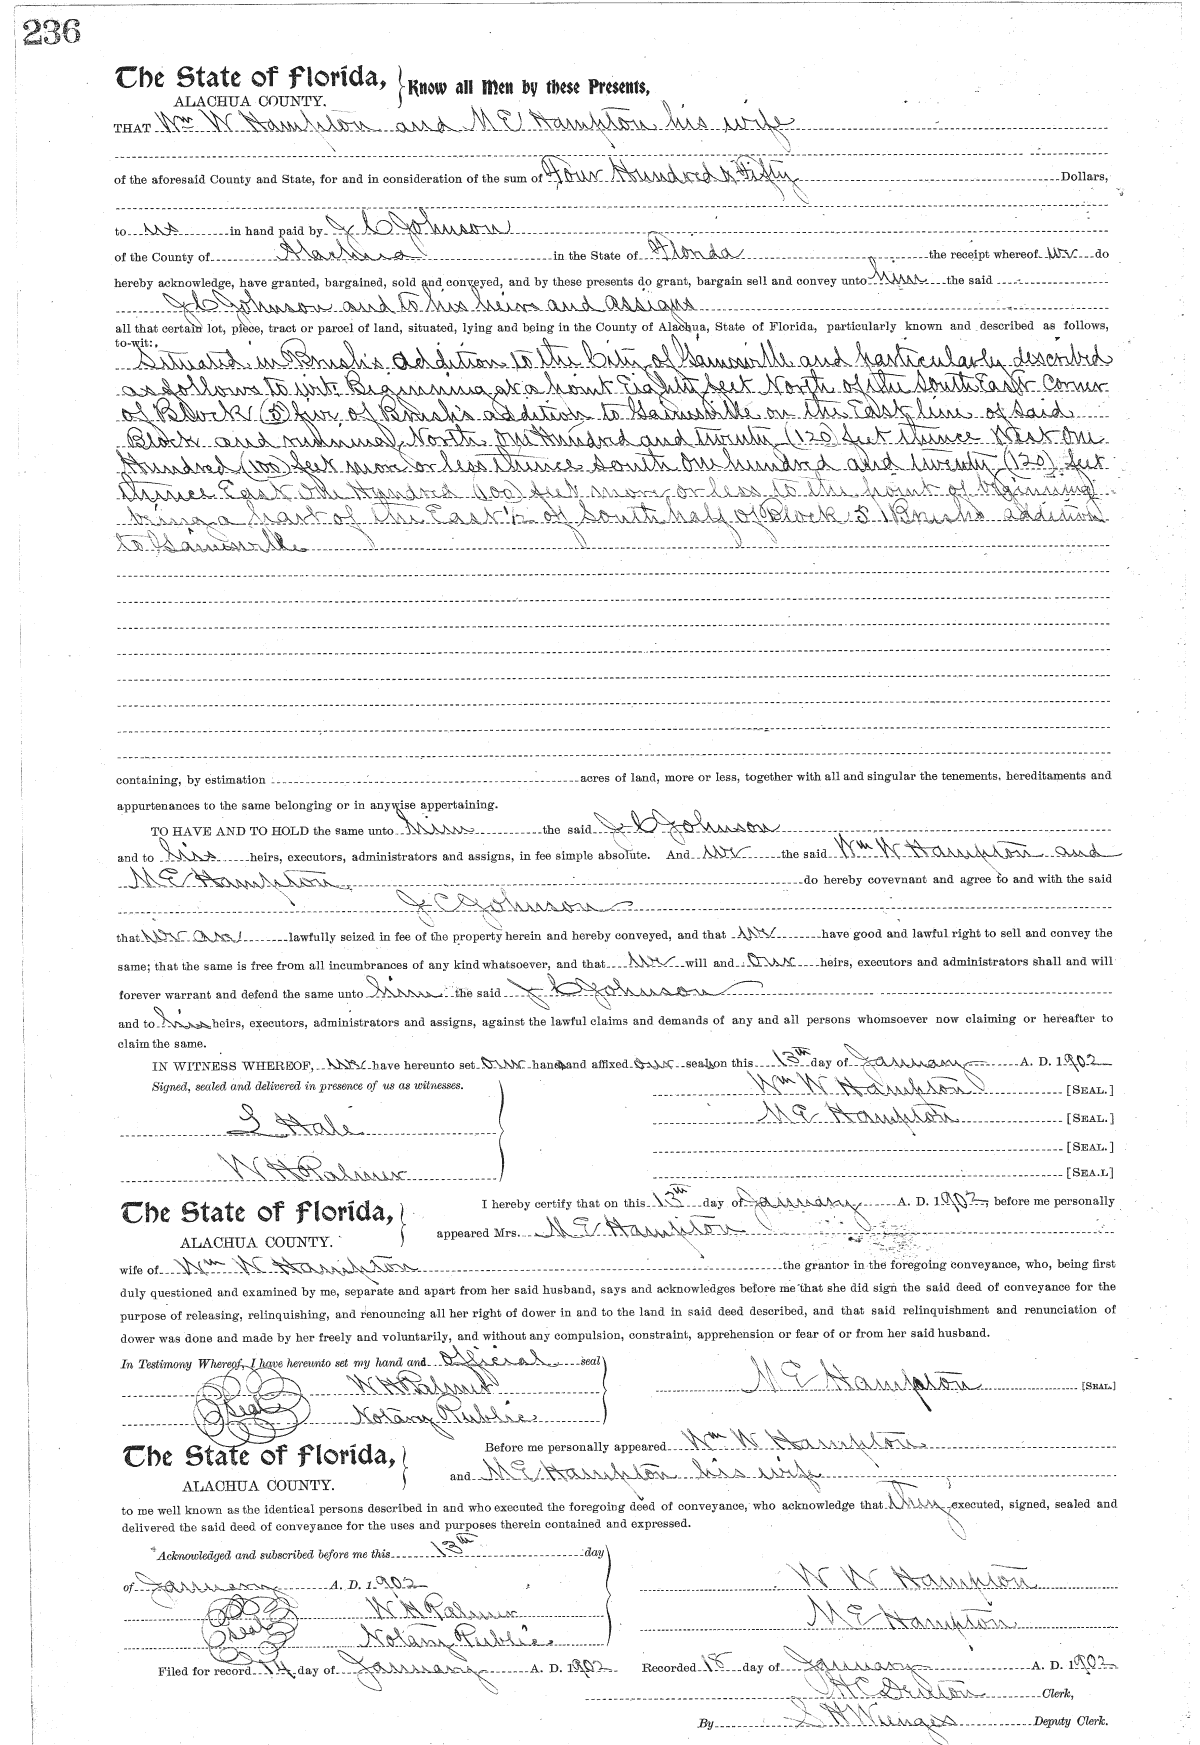 236
The State of Florida, } Know all Men by these Presents,
ALACHUA COUNTY.
THAT Wm W Hampton and M E Hampton his wife
of the aforesaid County and State, for and in consideration of the sum of Four Hundred & Fifty Dollars,
to us in hand paid by J C Johnson
of the County of Alachua in the State of Florida the receipt whereof we do
hereby acknowledge, have granted, bargained, sold and conveyed, and by these presents do grant, bargain sell and convey unto him the said
J C Johnson and to his heirs and assigns
all that certain lot, piece, tract or parcel of land, situated, lying and being in the County of Alachua, State of Florida, particularly known and described as follows,
to-wit:
Situated in Brush's addition to the City of Gainesville and particularly described
as follows to wit: Beginning at a point Eighty feet North of the South East Corner
of Block (5) five of Brush's addition to Gainesville on the East line of said
Block and running North One Hundred and twenty (120) feet thence West One
Hundred (100) feet more or less thence South One hundred and twenty (120) feet
thence East One Hundred (100) feet more or less to the point of beginning
being a part of the East 1/2 of South half of Block 5 Brush's addition
to Gainesville
containing, by estimation acres of land, more or less, together with all and singular the tenements, hereditaments and
appurtenances to the same belonging or in anywise appertaining.
TO HAVE AND TO HOLD the same unto him the said J C Johnson
and to his heirs, executors, administrators and assigns, in fee simple absolute. And we the said Wm W Hampton and
M E Hampton do hereby covevnant and agree to and with the said
J C Johnson
that we are lawfully seized in fee of the property herein and hereby conveyed, and that we have good and lawful right to sell and convey the
same; that the same is free from all incumbrances of any kind whatsoever, and that we will and our heirs, executors and administrators shall and will
forever warrant and defend the same unto him the said J C Johnson
and to his heirs, executors, administrators and assigns, against the lawful claims and demands of any and all persons whomsoever now claiming or hereafter to
claim the same.
IN WITNESS WHEREOF, we have hereunto set our hands and affixed our seals on this 13th day of January A. D. 1902
Signed, sealed and delivered in presence of us as witnesses.
Wm W Hampton [SEAL.]
M E Hampton [SEAL.]
S Hale
[SEAL.]
W H Palmer
[SEA.L]
The State of Florida, } I hereby certify that on this 13th day of January A. D. 1902, before me personally
ALACHUA COUNTY. appeared Mrs. M E Hampton
wife of Wm W Hampton the grantor in the foregoing conveyance, who, being first
duly questioned and examined by me, separate and apart from her said husband, says and acknowledges before me that she did sign the said deed of conveyance for the
purpose of releasing, relinquishing, and renouncing all her right of dower in and to the land in said deed described, and that said relinquishment and renunciation of
dower was done and made by her freely and voluntarily, and without any compulsion, constraint, apprehension or fear of or from her said husband.
In Testimony Whereof, I have hereunto set my hand and official seal
W H Palmer M E Hampton [SEAL]
Seal Notary Public
The State of Florida, } Before me personally appeared Wm W Hampton
ALACHUA COUNTY. and M E Hampton his wife
to me well known as the identical persons described in and who executed the foregoing deed of conveyance, who acknowledge that they executed, signed, sealed and
delivered the said deed of conveyance for the uses and purposes therein contained and expressed.
Acknowledged and subscribed before me this 13th day
of January A. D. 1902 W W Hampton
W H Palmer M E Hampton
Seal Notary Public
Filed for record 14 day of January A. D. 1902 Recorded 18 day of January A. D. 1902
H C Denton Clerk,
By S H Wienges Deputy Clerk.